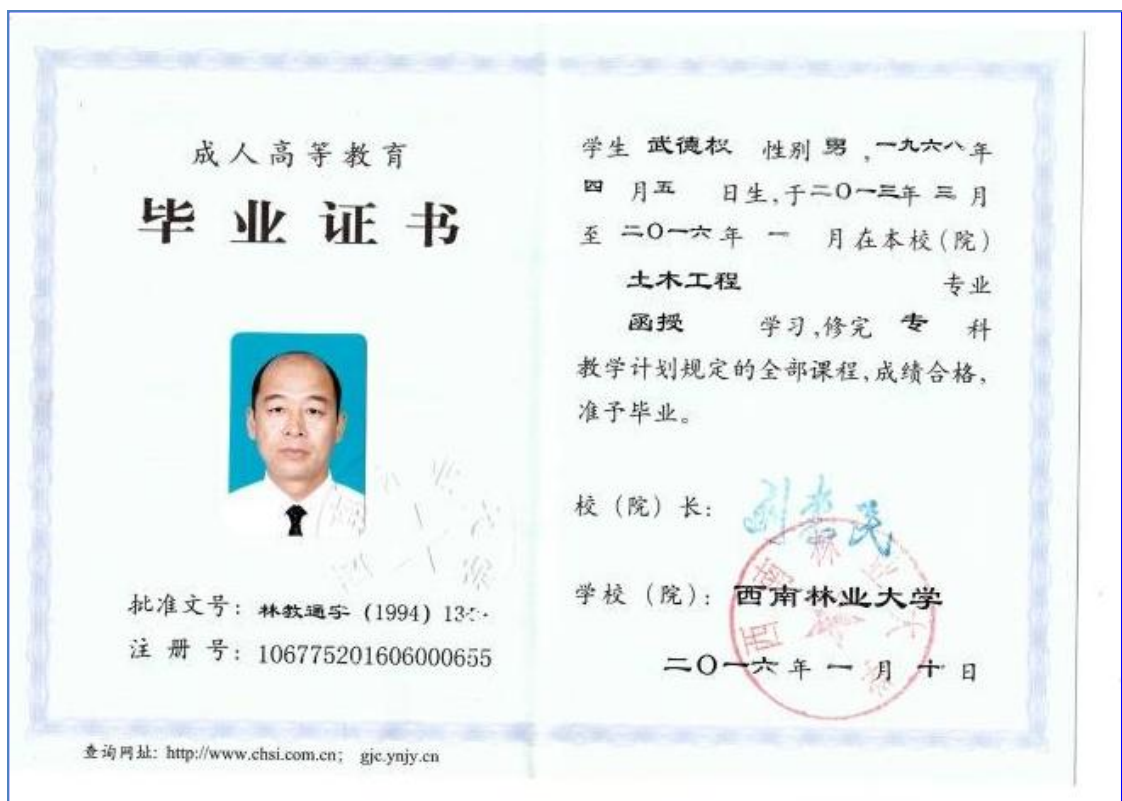 成人高等教育
毕业证书
批准文号: 林教通字 (1994) 13
注册号: 106775201606000655
查询网址: http://www.chsi.com.cn; gjc.ynjy.cn
学生 武德权 性别 男 ,一九六八年
四 月五 日生,于二〇一三年 三 月
至 二〇一六年 一 月在本校(院)
土木工程 专业
函授 学习,修完 专 科
教学计划规定的全部课程,成绩合格,
准予毕业。
校(院)长:
学校(院): 西南林业大学
西南林业大学
二〇一六年 一 月 十 日